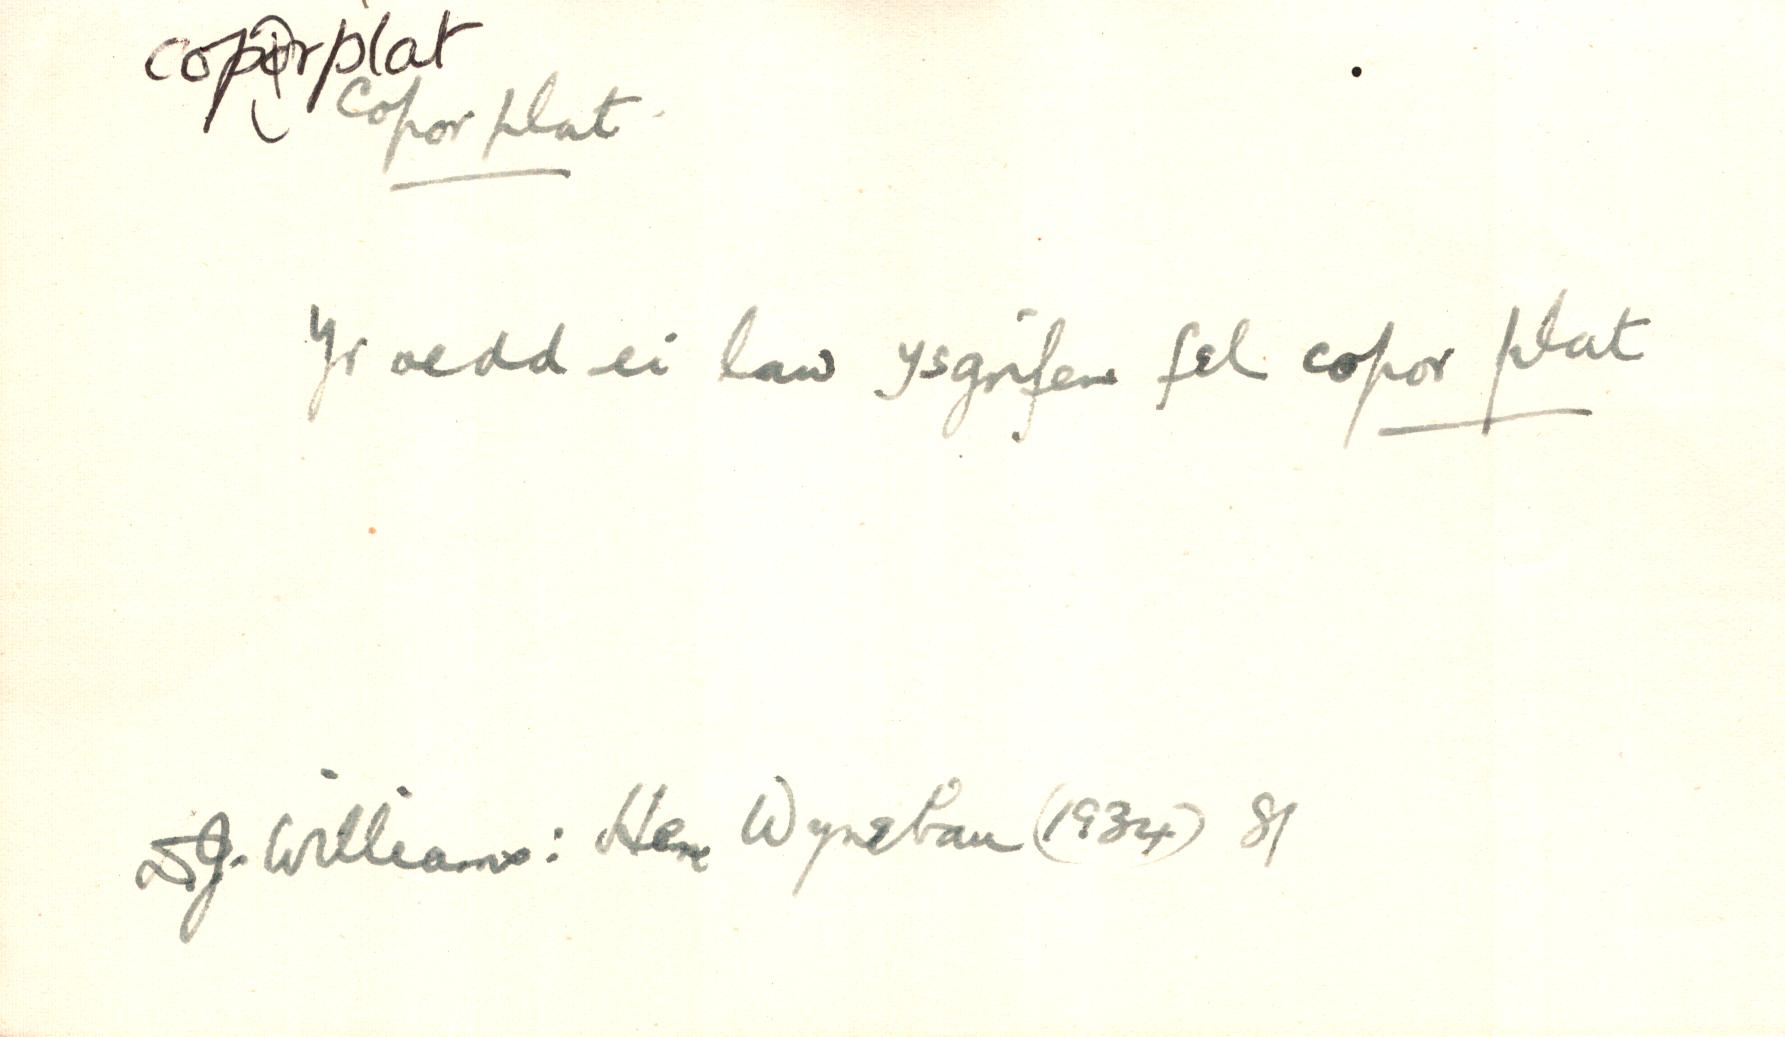 coporplat
Copor plat
Yr oedd ei law ysgrifen fel copor plat
D.J. Williams: Hen Wynebau (1934) 81